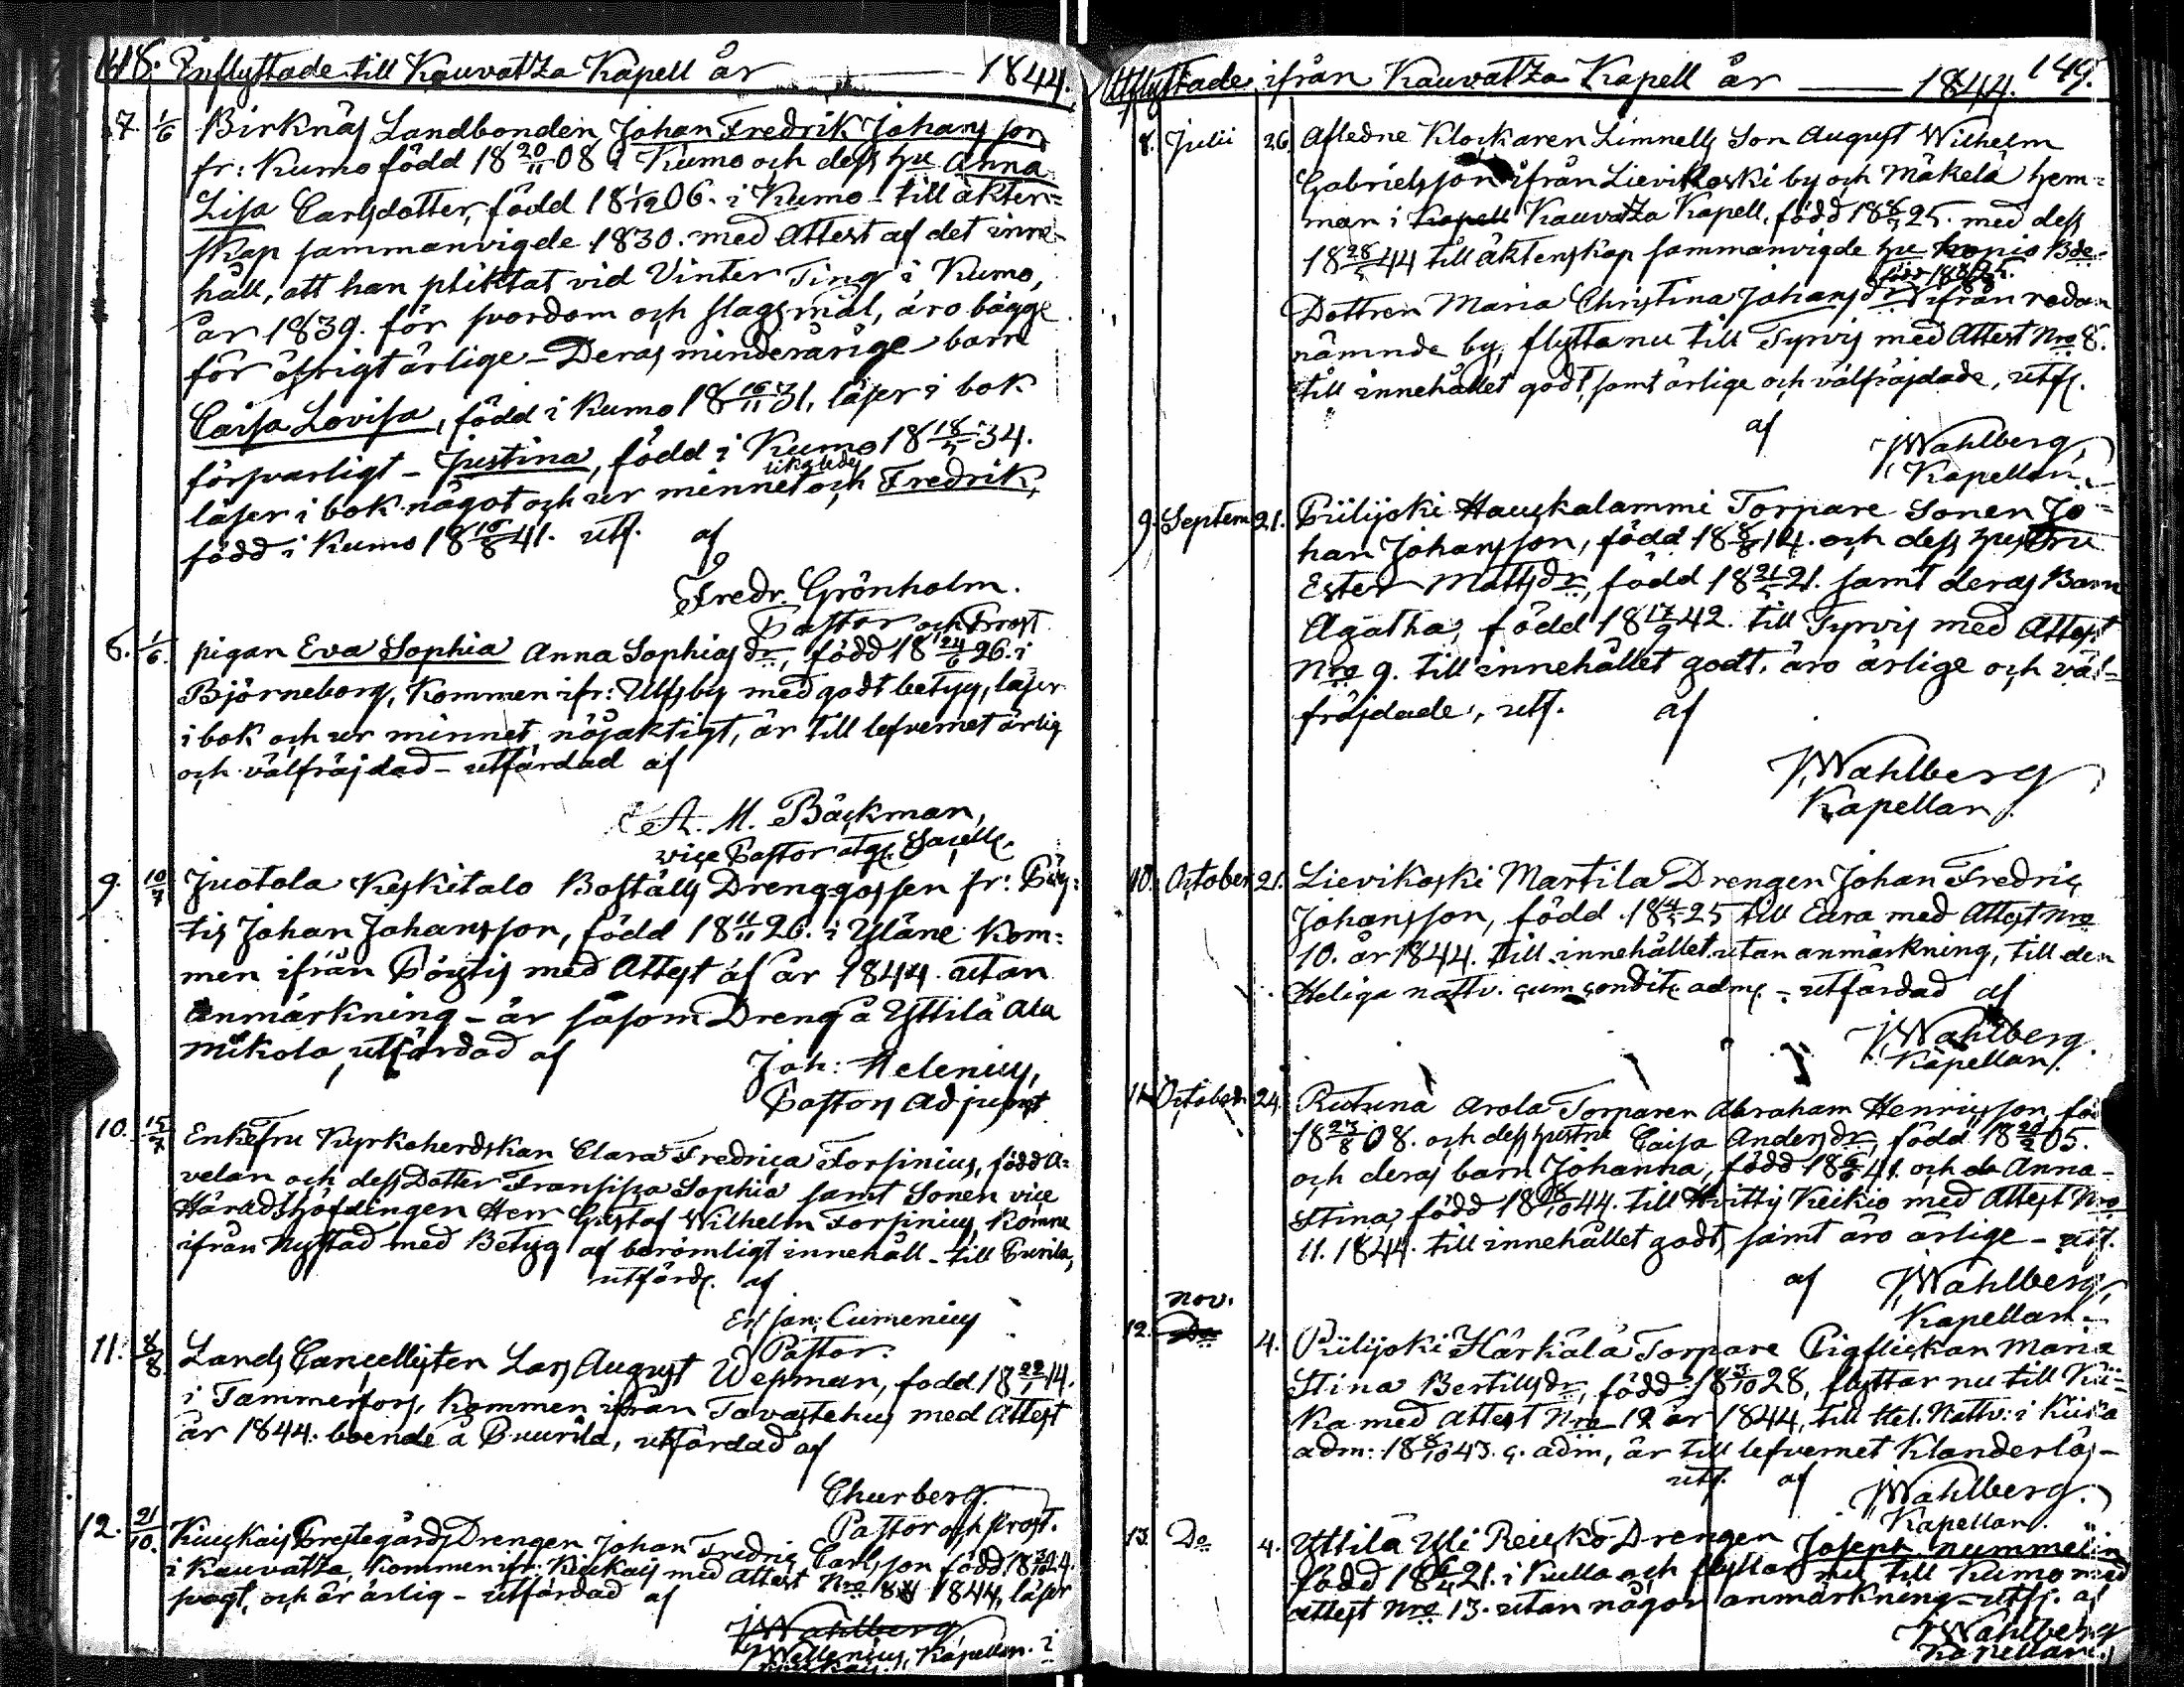 148. Inflyttade till Kauvatza Kapell år 1844.
7. 1/6 Birknäs Landbonden Johan Fredrik Johansson
fr: Kumo född 18 20/11 08 i Kumo och dess hu Anna
Lisa Carlsdotter, född 18 1/12 06. i Kumo till äkten-
skap sammanvigde 1830. med Attest af det inne-
håll, att han pliktat vid Vinter Ting i Kumo,
år 1839. för svordom och slagsmål, äro bägge
för öfrigt ärlige - Deras minderårige barn
Caisa Lovisa, född i Kumo 18 16/11 31, läser i bok
försvarligt - Justina, född i Kumo 18 18/5 34.
läser i bok något och ur minnet likaledes och Fredrik,
född i Kumo 18 15/8 41. utf. af
Fredr. Grönholm.
Pastor och Prost
6. 1/6. pigan Eva Sophia Anna Sophiasdr, född 18 24/6 26. i
Björneborg, kommen ifr: Ulfsby med godt betyg, läser
i bok och ur minnet nöjaktigt, är till lefvernet ärlig
och välfräjdad - utfärdad af
A. M. Bäckman,
vice Pastor atq. Sacell.
9. 10/7 Juotola Keskitalo Boställs Drenggossen fr: Pöy-
tis Johan Johansson, född 18 11/11 26. i Yläne kom-
men ifrån Pöytis med Attest af år 1844. utan
anmärkning - är såsom Dreng å Yttilä Ala
Mikola, utfärdad af
Joh: Helenius,
Pastors Adjunct
10. 15/7 Enkefru Kyrkoherdskan Clara Fredrica Forsinius, född A-
velan och dess Dotter Fransiska Sophia samt Sonen vice
Häradshöfdingen Herr Gustaf Wilhelm Forsinius, komne
ifrån Nystad med Betyg af berömligt innehåll - till Puurila,
utfärd. af
Er: Jan: Cumenius
Pastor.
11. 8/8 Lands Cancellisten Lars August Wepman, fodd 18 22/1 14.
i Tammerfors, kommen ifrån Tavastehus med Attest
år 1844. boende å Puurila, utfärdad af
Churberg.
Pastor och Prost.
12. 21/10. Kiuckais Prestegårds Drengen Johan Fredric Carlsson född 18 3/12 24.
i Kauvatza, kommen ifr. Kiuckais med Attest Nro 1844, läser
svagt, och är ärlig - utfärdad af
J Wahlberg
J Wellenius, Kapellan. i
Kiuckais.
Utflyttade ifrån Kauvatza Kapell år 1844. 149.
8. Julii 26 Afledne Klockaren Limnells Son August Wilhelm
Gabrielsson ifrån Lievikoski by och Mäkelä hem-
man i Kapell Kauvatza Kapell, född 18 8/5 25. med dess
18 28/5 44 till äktenskap sammanvigde hu hopio Bde.
Dottren Maria Christina Johansdr ifrån redan
nämnde by, flytta nu till Tyrvis med Attest Nro 8.
till innehållet godt, samt ärlige och välfräjdade, utf.
af
J Wahlberg,
Kapellan.
9. Septem 21. Piilijoki Hauskalammi Torpare Sonen Jo-
han Johansson, född 18 8/8 14. och dess hustru
Ester Mattsdr, född 18 21/5 21. samt deras Barn
Agatha, född 18 17/9 42. till Tyrvis med Attest
Nro 9. till innehållet godt, äro ärlige och väl-
fräjdade, utf. af
J Wahlberg
Kapellan.
10. October 21. Lievikoski Martila Drengen Johan Fredric
Johansson, född 18 4/5 25 till Eura med Attest Nro
10. år 1844. till innehållet utan anmärkning, till den
Heliga nattv. cum condit: adm: - utfärdad af
J Wahlberg.
Kapellan.
11. October 24. Rutuna Arola Torparen Abraham Henricsson, föd
18 23/8 08. och dess hustru Caisa Andersdr född 18 20/2 05.
och deras barn Johanna, född 18 6/6 41. och Anna-
Stina, född 18 16/10 44. till Hvittis Keikio med Attest Nro
11. 1844. till innehållet godt, samt äro ärlige - utf.
af J Wahlberg,
Kapellan.
12. nov. Do 4. Piilijoki Härkälä Torpare Pigflickan Maria
Stina Bertilsdr, född 18 3/10 28, flyttar nu till Kii-
ka med attest Nro 12 år 1844, till Hel. Nattv: i Kiika
adm: 18 8/10 43. c. adm, är till lefvernet klanderlös -
utf. af J Wahlberg.
Kapellan.
13. Do 4. Yttilä Yli Reucko Drengen Joseph Nummelin
född 18 6/4 21. i Kulla och flyttar nu till Kumo med
attest Nro 13. utan någon anmärkning - utf. af
J Wahlberg
Kapellan.